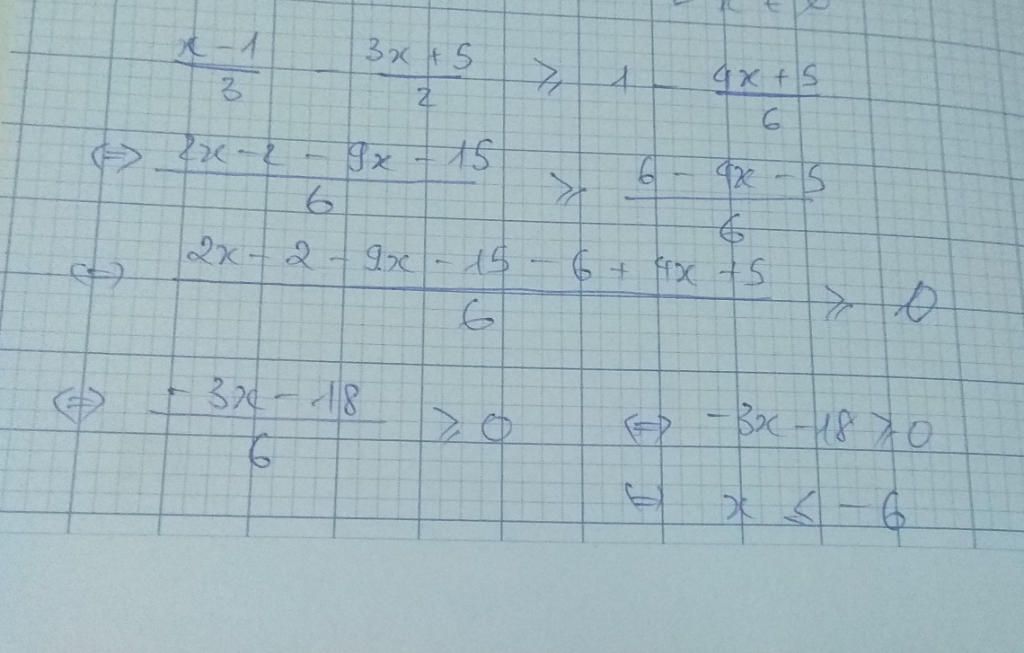 (x - 1)/3 - (3x + 5)/2 ⩾ 1 - (4x + 5)/6
⇔ (2x - 2 - 9x - 15)/6 ⩾ (6 - 4x - 5)/6
⇔ (2x - 2 - 9x - 15 - 6 + 4x + 5)/6 ⩾ 0
⇔ (- 3x - 18)/6 ⩾ 0 ⇔ - 3x - 18 ⩾ 0
⇔ x ⩽ - 6